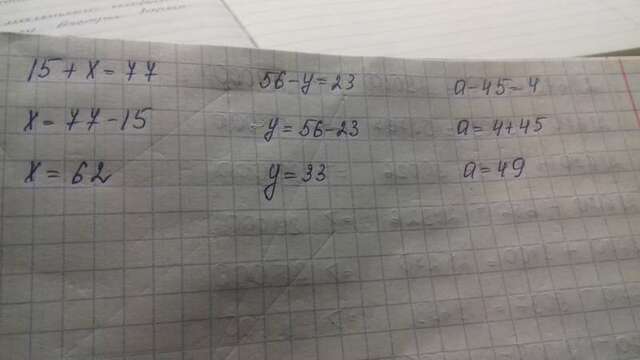 15 + x = 77
x = 77 - 15
x = 62
56 - y = 23
y = 56 - 23
y = 33
a - 45 = 4
a = 4 + 45
a = 49